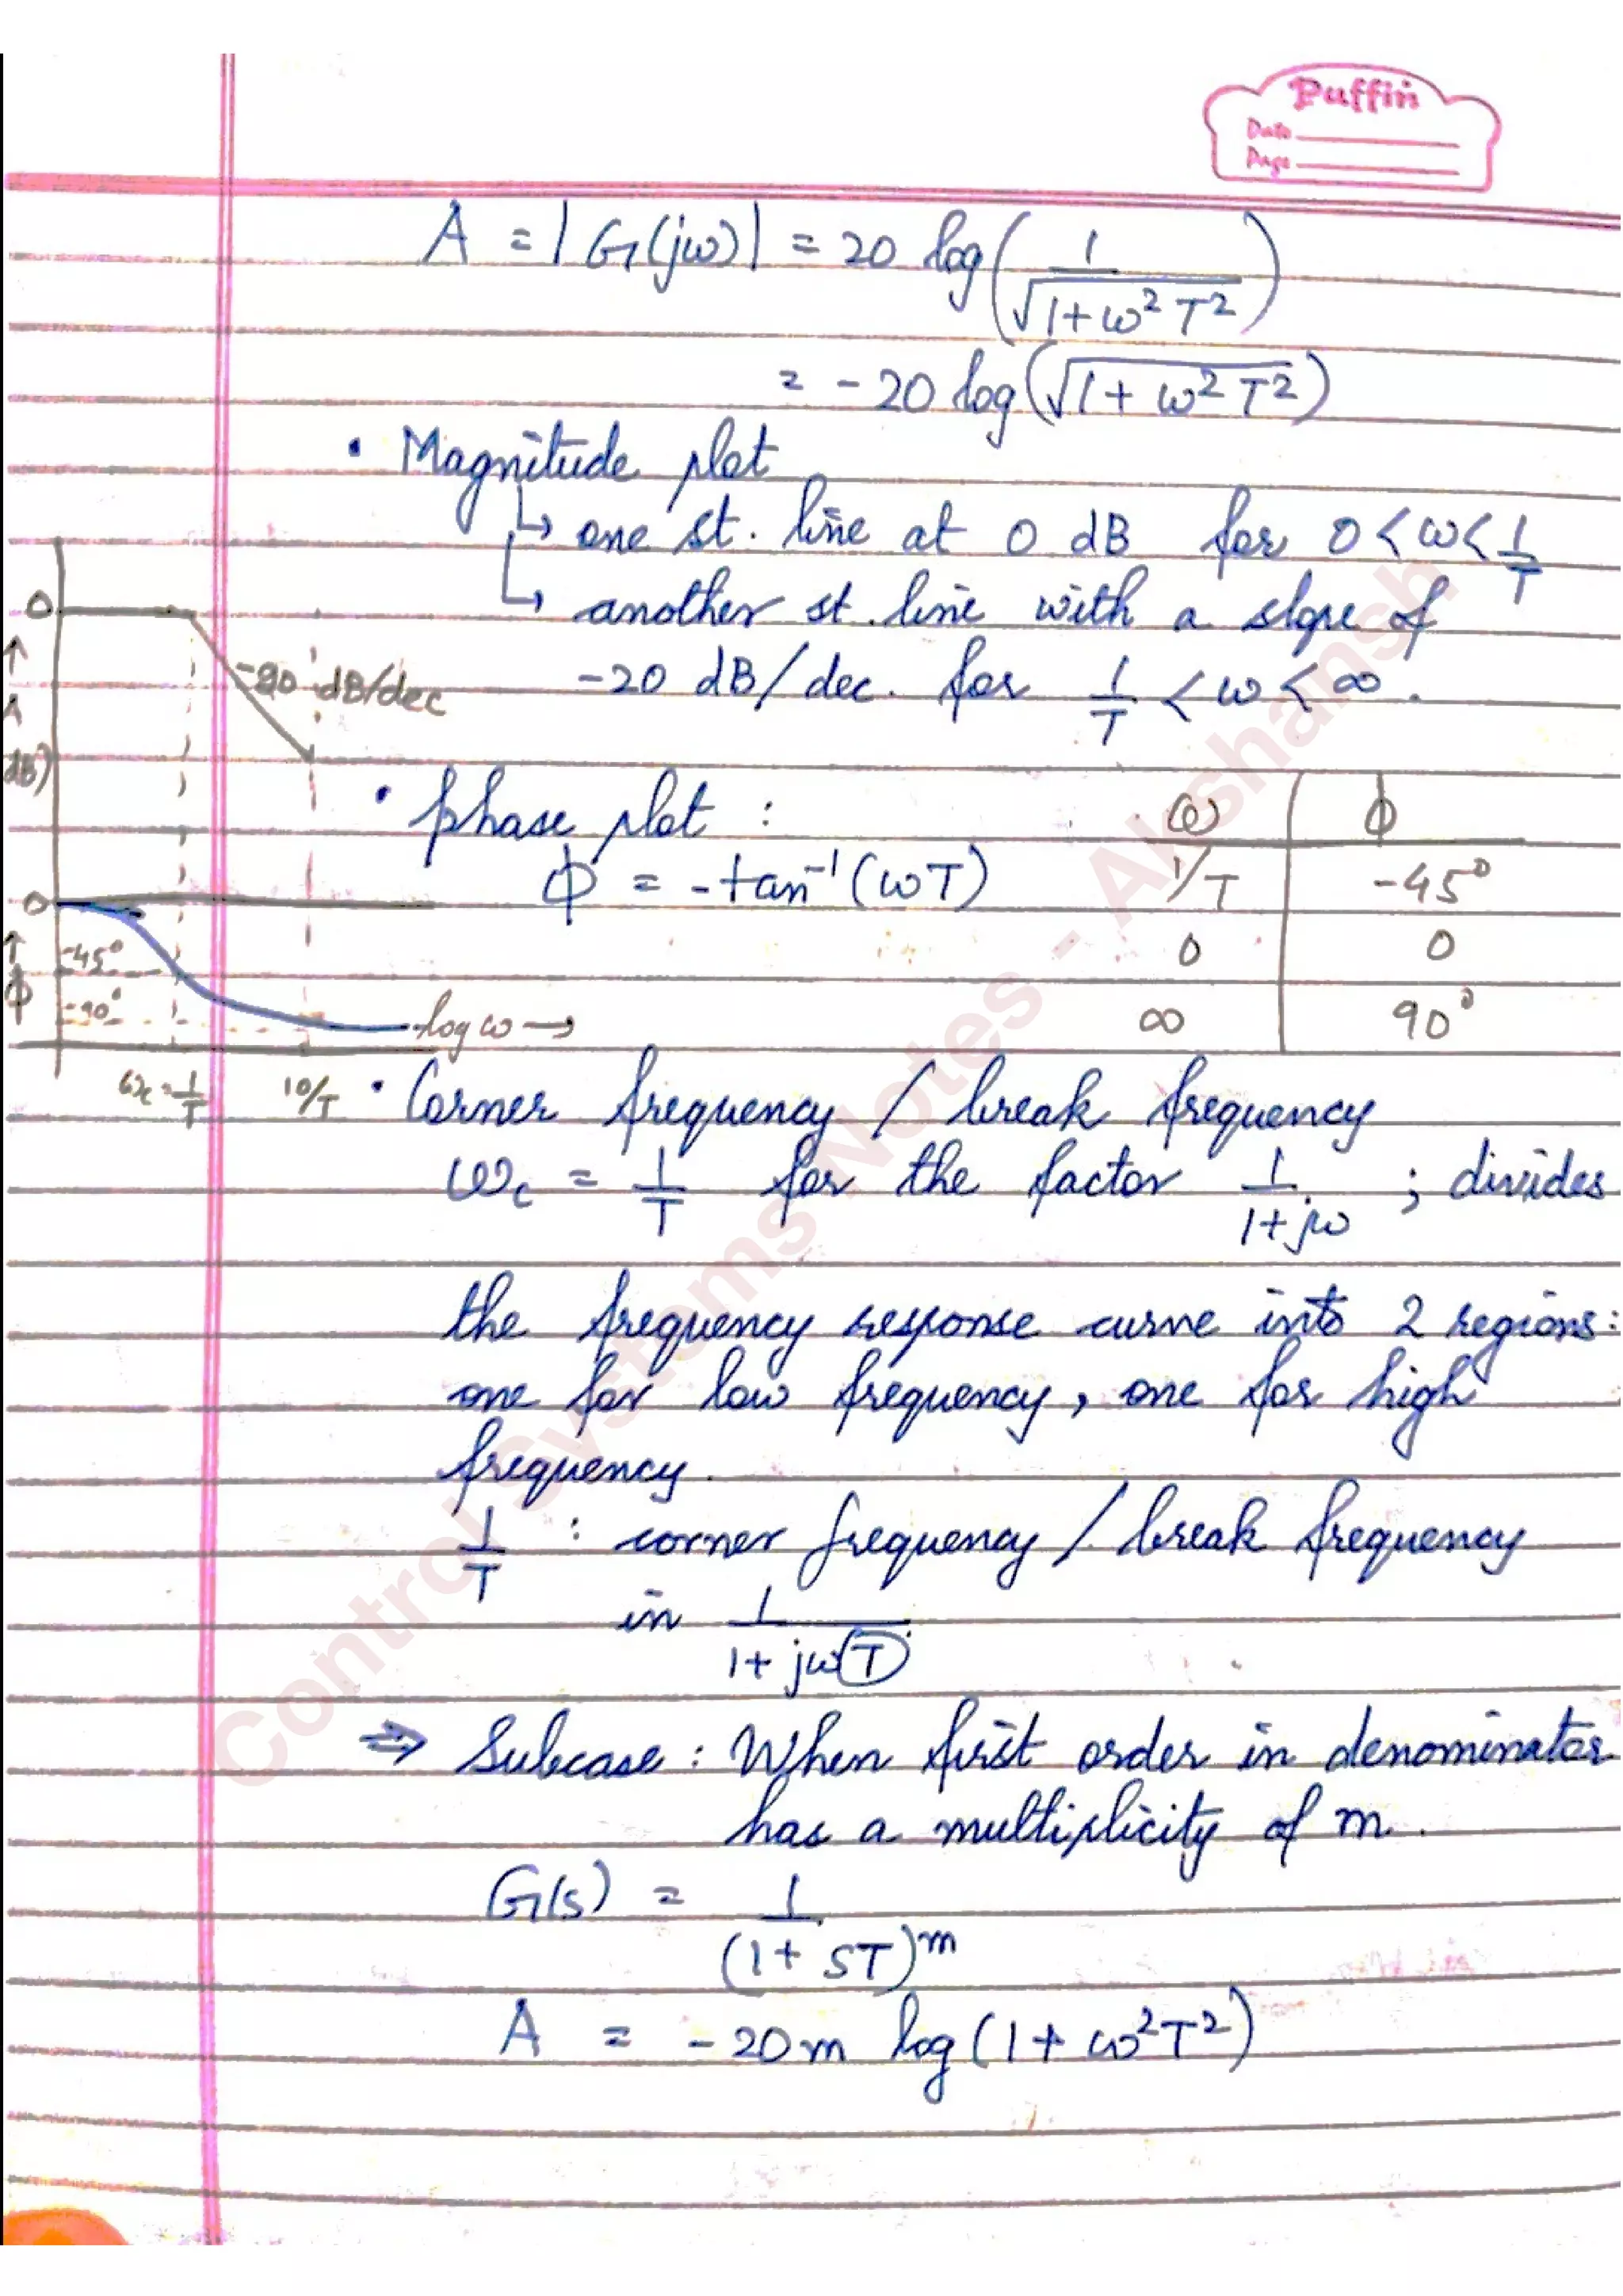 Puffin
Date
Page
A = |G(jω)| = 20 log(1/√(1+ω²T²))
= -20 log(√(1+ω²T²))
• Magnitude plot
↳ one st. line at 0 dB for 0<ω<1/T
↳ another st. line with a slope of
-20 dB/dec. for 1/T < ω < ∞.
0
-20 dB/dec
↑
A
dB)
• phase plot :
ω | ϕ
ϕ = -tan⁻¹(ωT)
1/T | -45°
0 | 0
∞ | 90°
0
-45°
-90°
↑
ϕ
log ω →
ωc = 1/T
10/T
• Corner frequency / break frequency
ωc = 1/T for the factor 1/(1+jω) ; divides
the frequency response curve into 2 regions:
one for low frequency, one for high
frequency.
1/T : corner frequency / break frequency
in 1/(1+jωT)
⇒ Subcase : When first order in denominator
has a multiplicity of m.
G(s) = 1/(1+ST)ᵐ
A = -20m log(1+ω²T²)
Control Systems Notes - Akshansh